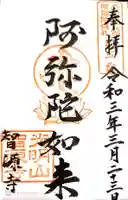 奉拝
令和三年三月二十三日
阿弥陀如来
智源寺